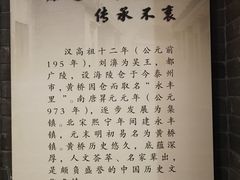 传承不衰
汉高祖十二年(公元前
195年),刘濞为吴王,都
广陵,设海陵仓于今泰州
市,黄桥因仓而取名“永丰
里”。南唐昇元元年(公元
973年),逐步发展为集
镇。北宋熙宁年间建永丰
镇,元末明初易名为黄桥
镇。黄桥历史悠久,底蕴深
厚,人文荟萃、名家辈出,
是颇负盛誉的中国历史文